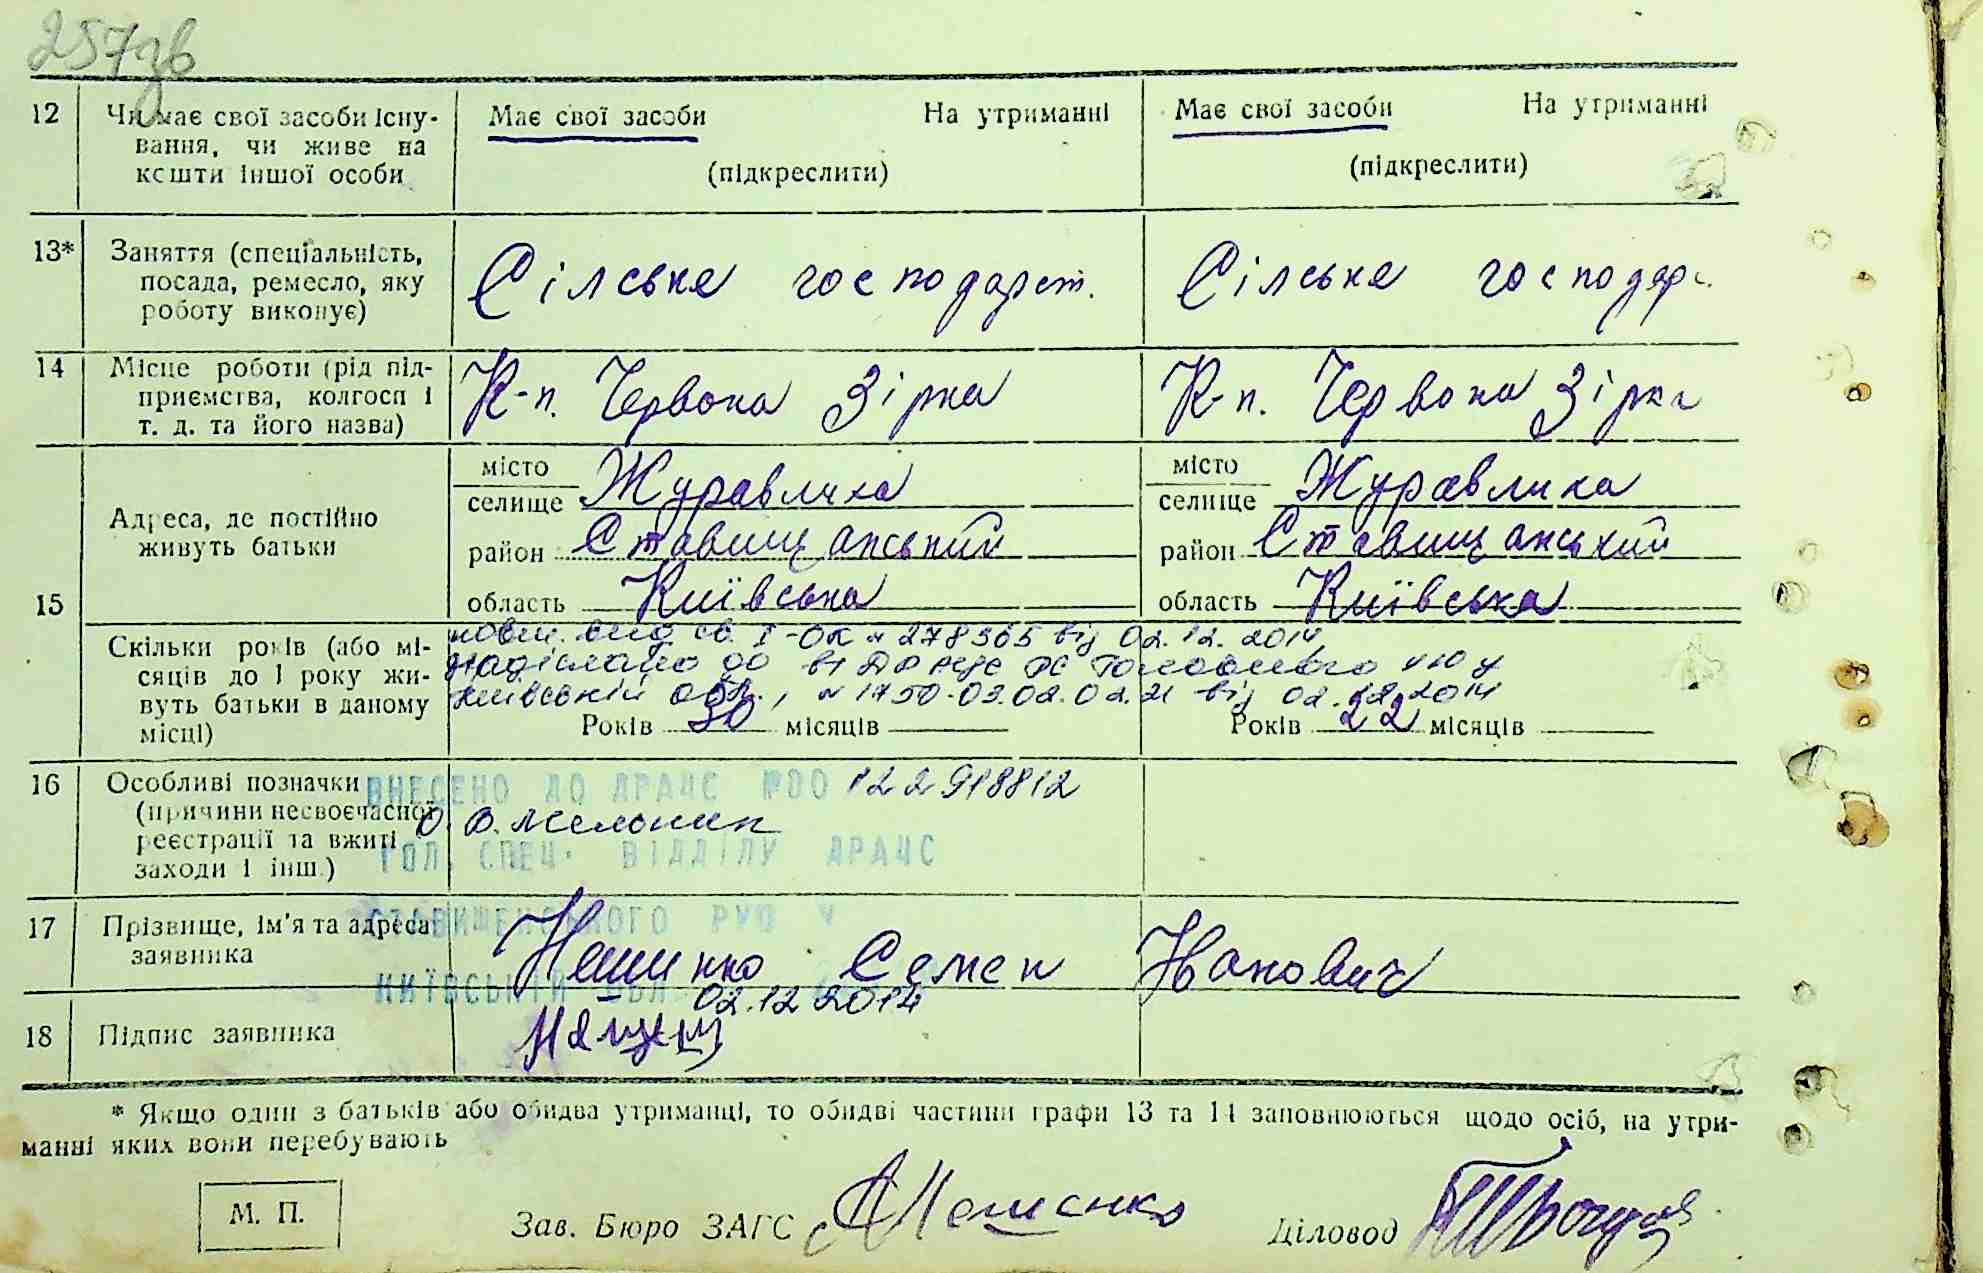 257зв
12 Чи має свої засоби існу- Має свої засоби На утриманні Має свої засоби На утриманні
вання, чи живе на
кошти іншої особи (підкреслити) (підкреслити)
13* Заняття (спеціальність,
посада, ремесло, яку Сілське господарст. Сілське господарс.
роботу виконує)
14 Місце роботи (рід під-
приємства, колгосп і К-п. Червона Зірка К-п. Червона Зірка
т. д. та його назва)
місто місто
селище Журавлиха селище Журавлиха
Адреса, де постійно
живуть батьки район Ставищанський район Ставищанський
15 область Київська область Київська
повт. вид. св. І-ОК № 278565 від 02.12.2014
Скільки років (або мі- надіслано до Головного
сяців до 1 року жи- Київській обл., № 1750-03.02.02.21 від 02.12.2014
вуть батьки в даному
місці) Років 30 місяців Років 22 місяців
16 Особливі позначки ВНЕСЕНО ДО ДРАЦС №00 122918812
(причини несвоєчасної О. В. Мельник
реєстрації та вжиті
заходи і інш.) ГОЛ. СПЕЦ. ВІДДІЛУ ДРАЦС
17 Прізвище, ім'я та адреса СТАВИЩЕНСЬКОГО РУЮ У
заявника Семен Іванович
КИЇВСЬКІЙ ОБЛ. 02.12 2014
18 Підпис заявника
* Якщо один з батьків або обидва утриманці, то обидві частини графи 13 та 14 заповнюються щодо осіб, на утри-
манні яких вони перебувають
М. П.
Зав. Бюро ЗАГС Діловод